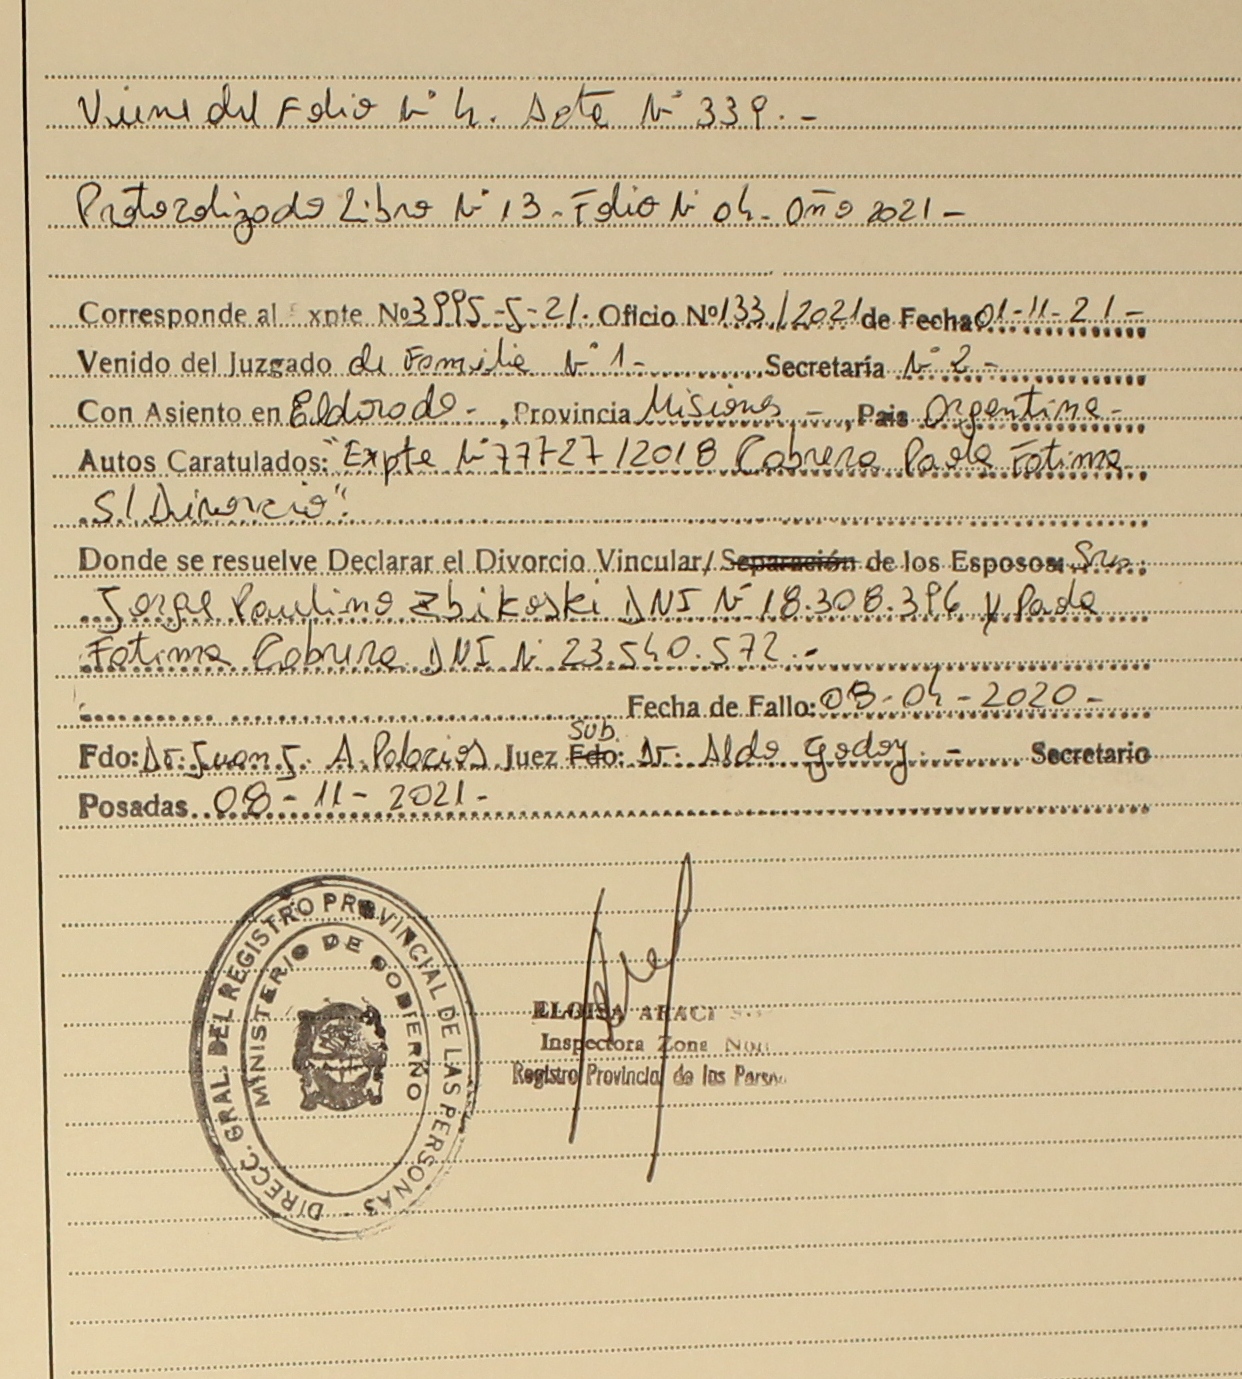 Viene del Folio N° 4. Acta N° 339.-
Protocolizado Libro N° 13 - Folio N° 04 - Año 2021 -
Corresponde al xpte No 3995-S-21. Oficio Nº 133/2021 de Fecha 01-11-21-
Venido del Juzgado de Familia N° 1- Secretaría N° 2-
Con Asiento en Eldorado-, Provincia Misiones -, Pais Argentina-
Autos Caratulados: "Expte N° 77727/2018 Cabrera Paola Fatima
S/ Divorcio".
Donde se resuelve Declarar el Divorcio Vincular/ Separación de los Esposos:
Jorge Paulino Zbikoski DNI N° 18.308.396 y Paola
Fatima Cabrera DNI N° 23.540.572.-
Fecha de Fallo: 08-04-2020-
Sub.
Fdo: Dr. Juan J. A. Palacios Juez Fdo: Dr. Aldo Godoy.- Secretario
Posadas 08-11-2021-
DIRECC. GRAL. DEL REGISTRO PROVINCIAL DE LAS PERSONAS
MINISTERIO DE GOBIERNO
ELOISA ARACI
Inspectora Zona
Registro Provincial de las